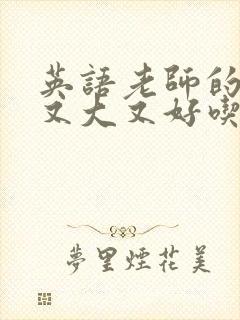 英語老師的
又大又好喫
夢里煙花美